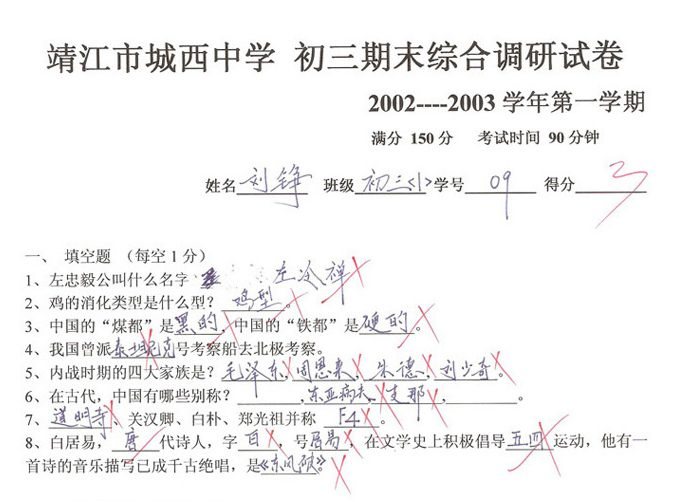 靖江市城西中学 初三期末综合调研试卷
2002----2003 学年第一学期
满分 150 分 考试时间 90 分钟
姓名 刘铮 班级 初三<1> 学号 09 得分 3
一、 填空题 (每空1分)
1、左忠毅公叫什么名字 左冷禅
2、鸡的消化类型是什么型? 鸡型。
3、中国的“煤都”是黑的,中国的“铁都”是硬的。
4、我国曾派泰坦尼克号考察船去北极考察。
5、内战时期的四大家族是? 毛泽东、周恩来、朱德、刘少奇。
6、在古代,中国有哪些别称? ______,东亚病夫,支那,______。
7、道明寺、关汉卿、白朴、郑光祖并称 F4。
8、白居易, 唐 代诗人,字 白,号居易,在文学史上积极倡导五四运动,他有一
首诗的音乐描写已成千古绝唱,是《东风破》。